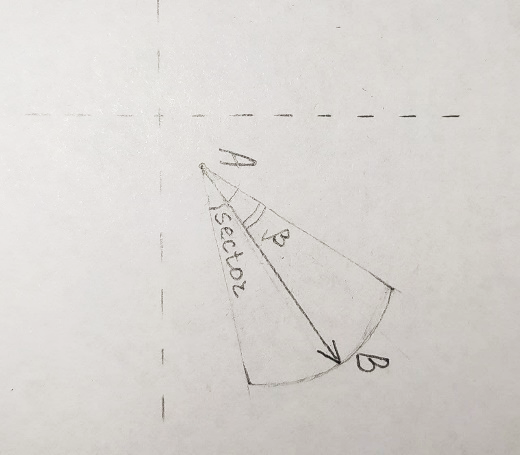 A
sector
β
B